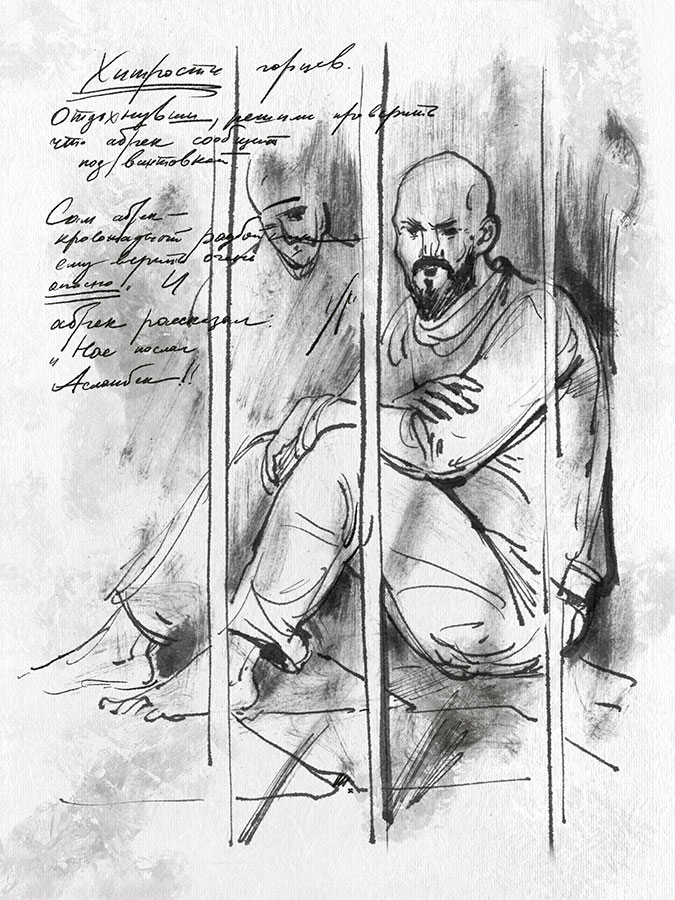 Хитрости горцев.
Отдохнувши, решили проверить
что абрек сообщит
под винтовкой
Сам абрек –
кровожадный разбой
ему верить очень
опасно. И
абрек рассказал:
"Нас послал
Асланбек!!